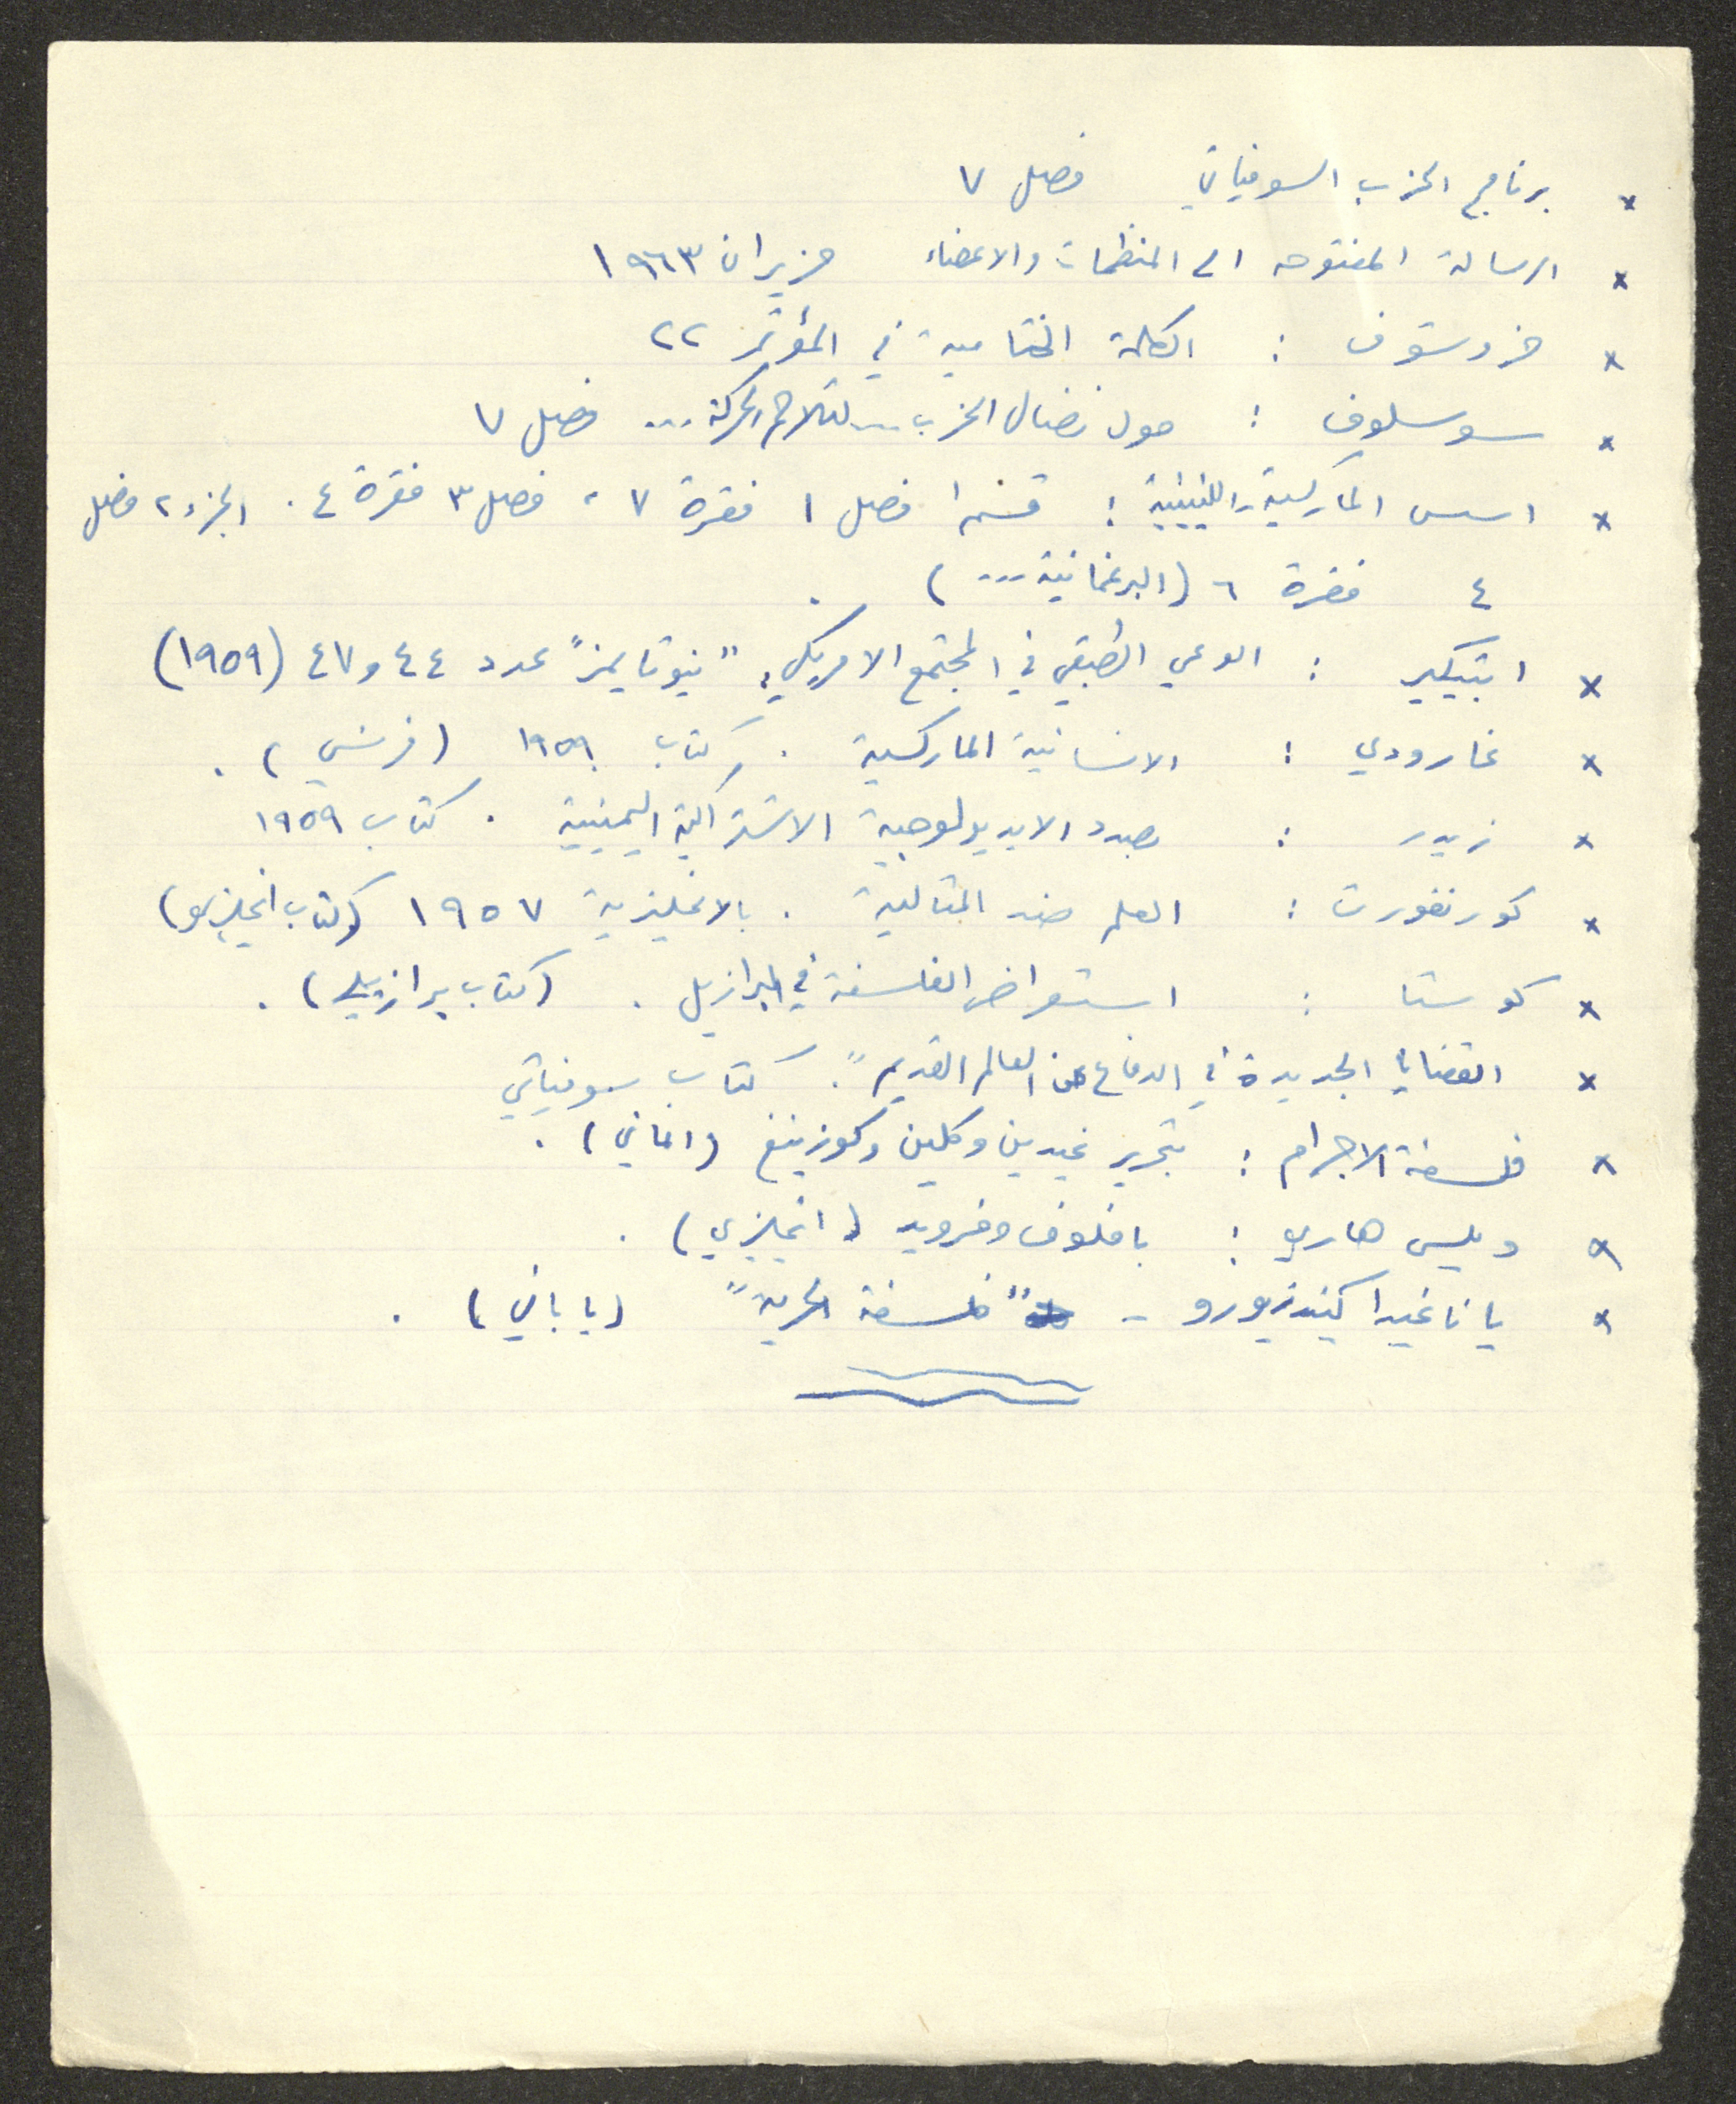 × برنامج الحزب السوفياتي فصل ٧
× الرسالة المفتوحه الى المنظمات والاعضاء حزيران ١٩٦٣
× خروستوف : الكلمة الختامية في المؤتمر ٢٢
× سوسلوف : حول نضال الحزب ... لتلاحم الحركة ... فصل ٧
× اسس الماركسية اللينينية : قسم ١ فصل ١ فقرة ٧ ، فصل ٣ فقرة ٤ . الجزء ٢ فصل
٤ فقرة ٦ (البرغماتية ...) .
× ابتيكير : الوعي الطبقي في المجتمع الامريكي، "نيوتايمز" عدد ٤٤ و ٤٧ (١٩٥٩)
× غارودي : الانسانية الماركسية . كتاب ١٩٥٩ (فرنسي) .
× زيدر : بصدد الايديولوجية الاشتراكية اليمينية . كتاب ١٩٥٩
× كورنفورت : العلم ضد المثالية . بالانجليزية ١٩٥٧ (كتاب انجليزي)
× كوستا : استعراض الفلسفة في البرازيل . (كتاب برازيلي) .
× القضايا الجديدة في الدفاع عن العالم القديم" . كتاب سوفياتي
× فلسفة الاجرام : تحرير غيدين وكلين وكوزينغ (الماني) .
× ويلس هاري : بافلوف وفرويد (انجليزي) .
× ياناغيدا كيندزيورو - "فلسفة الحرية" (ياباني) .